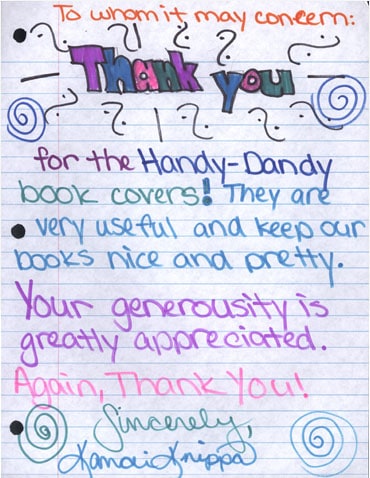 To whom it may concern:
Thank you
for the Handy-Dandy
book covers! They are
very useful and keep our
books nice and pretty.
Your generousity is
greatly appreciated.
Again, Thank You!
Sincerely,
Knippa